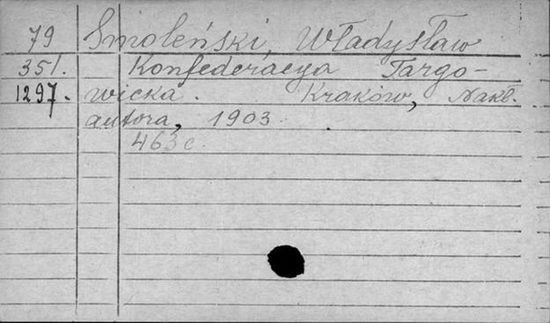 79 Smoleński, Władysław
351. Konfederacya Targo-
1297. wicka. Kraków, Nakł.
autora, 1903.
463 c.